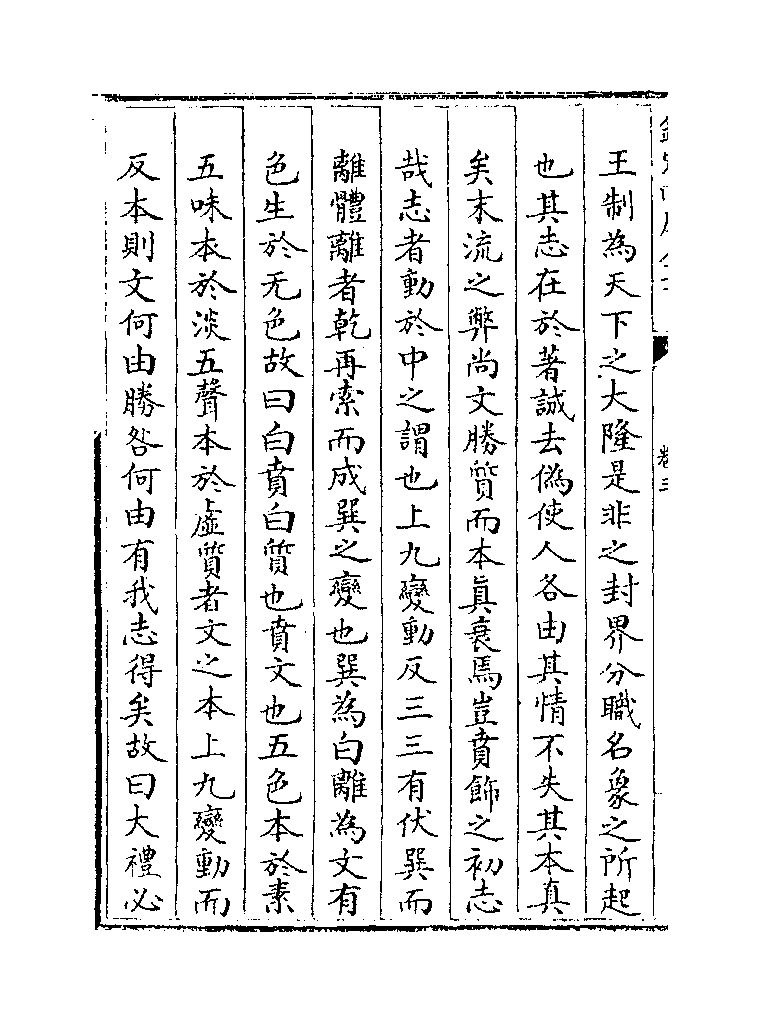 王制為天下之大隆是非之封界分職名象之所起
也其志在於著誠去偽使人各由其情不失其本真
矣末流之弊尚文勝質而本真衰焉豈賁飾之初志
哉志者動於中之謂也上九變動反三三有伏巽而
離體離者乾再索而成巽之變也巽為白離為文有
色生於无色故曰白賁白質也賁文也五色本於素
五味本於淡五聲本於虛質者文之本上九變動而
反本則文何由勝咎何由有我志得矣故曰大禮必
卷三